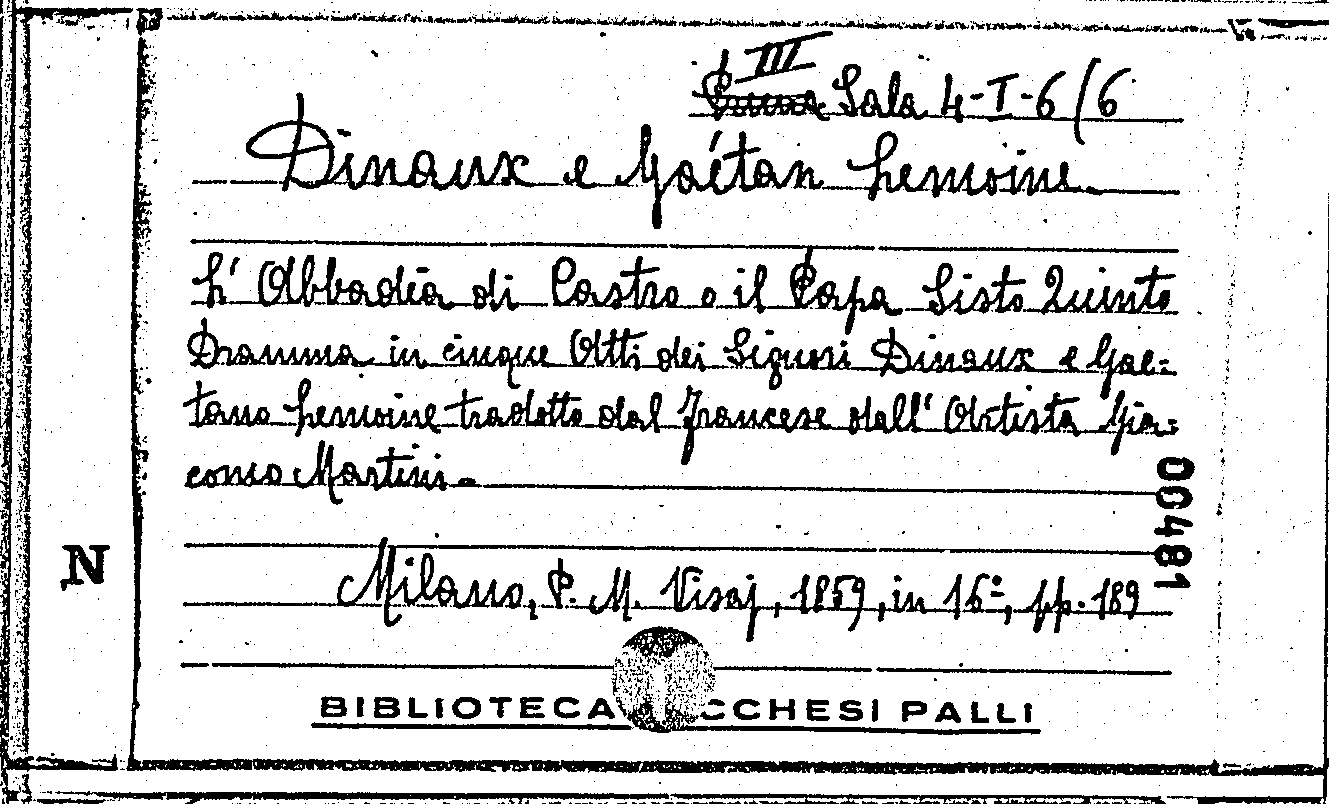 III
Prima Sala 4-I-6/6
Dinaux e Gaétan Lemoine.
L' Abbadia di Castro o il Papa Sisto Quinto
Dramma in cinque Atti dei Signori Dinaux e Gae-
tano Lemoine tradotto dal francese dall' Artista Gia-
como Martini.-
00481
N
Milano, P. M. Visaj, 1859, in 16º, pp. 189
BIBLIOTECA CCHESI PALLI